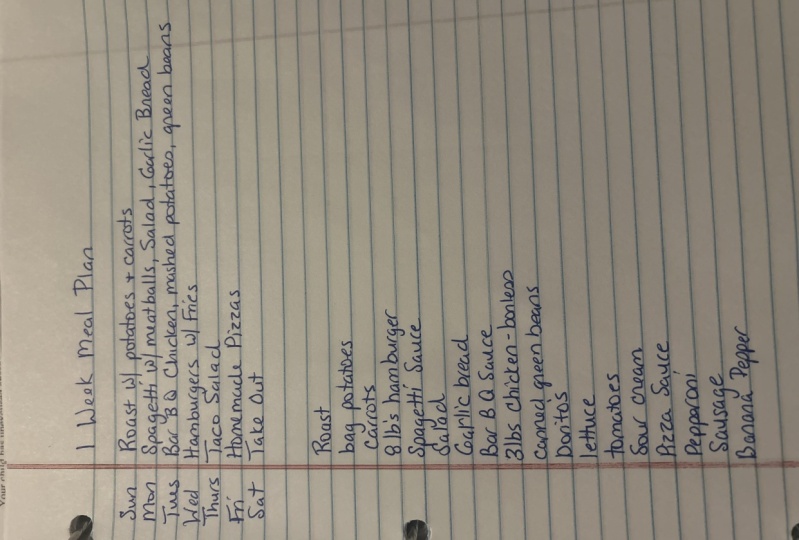 1 Week Meal Plan
Sun Roast w/ potatoes + carrots
Mon Spagetti w/ meatballs, Salad, Garlic Bread
Tues Bar B Q Chicken, mashed potatoes, green beans
Wed Hamburgers w/ Fries
Thurs Taco Salad
Fri Homemade Pizzas
Sat Take Out
Roast
bag potatoes
carrots
8 lb's hamburger
Spagetti Sauce
Salad
Garlic bread
Bar B Q Sauce
3lbs chicken - bonless
canned green beans
Doritos
lettuce
tomatoes
Sour cream
Pizza Sauce
Pepparoni
Sausage
Banana Pepper